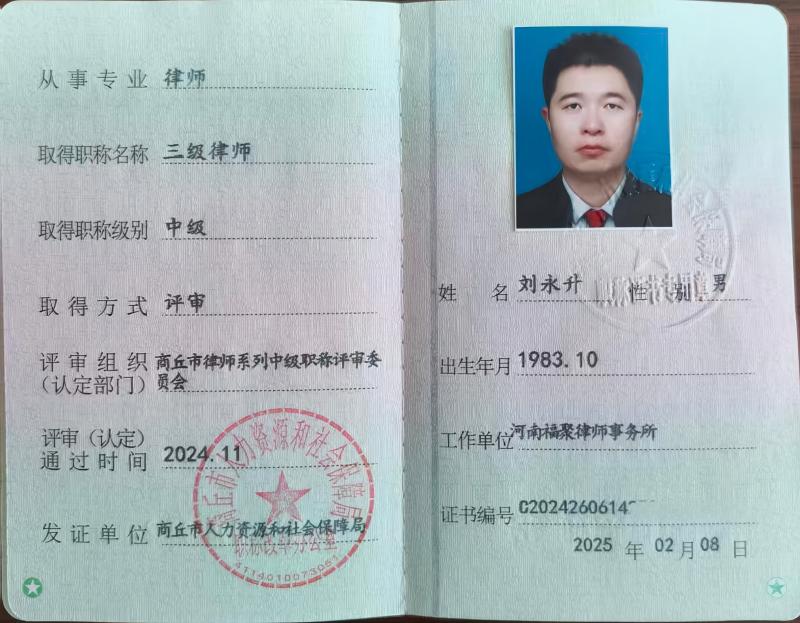 从事专业 律师
取得职称名称 三级律师
取得职称级别 中级
取得方式 评审
评审组织 商丘市律师系列中级职称评审委
（认定部门） 员会
评审（认定）
通过时间 2024.11
发证单位 商丘市人力资源和社会保障局
商丘市人力资源和社会保障局
职称改革办公室
4114010073061
姓名 刘永升 性别 男
出生年月 1983.10
工作单位 河南福聚律师事务所
证书编号 C2024260614
2025 年 02 月 08 日